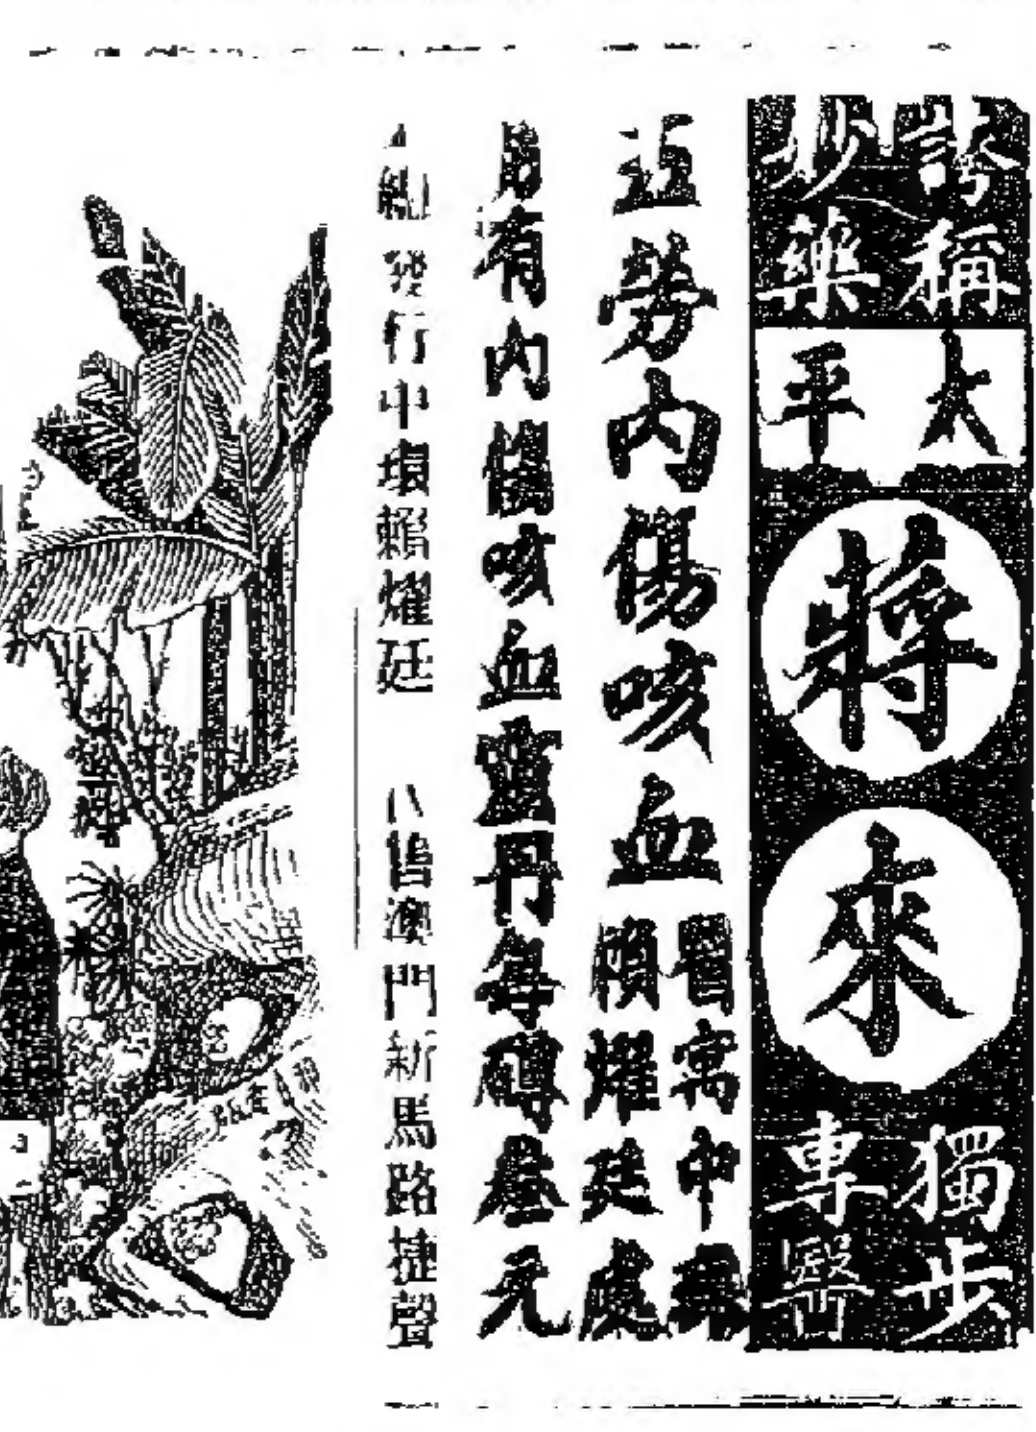 誇稱
妙藥
太平
蔣
來
獨步
專醫
五勞內傷咳血
醫寓中環
賴耀廷處
另有內傷咳血靈丹每樽叁元
總發行中環賴耀廷
售澳門新馬路捷聲